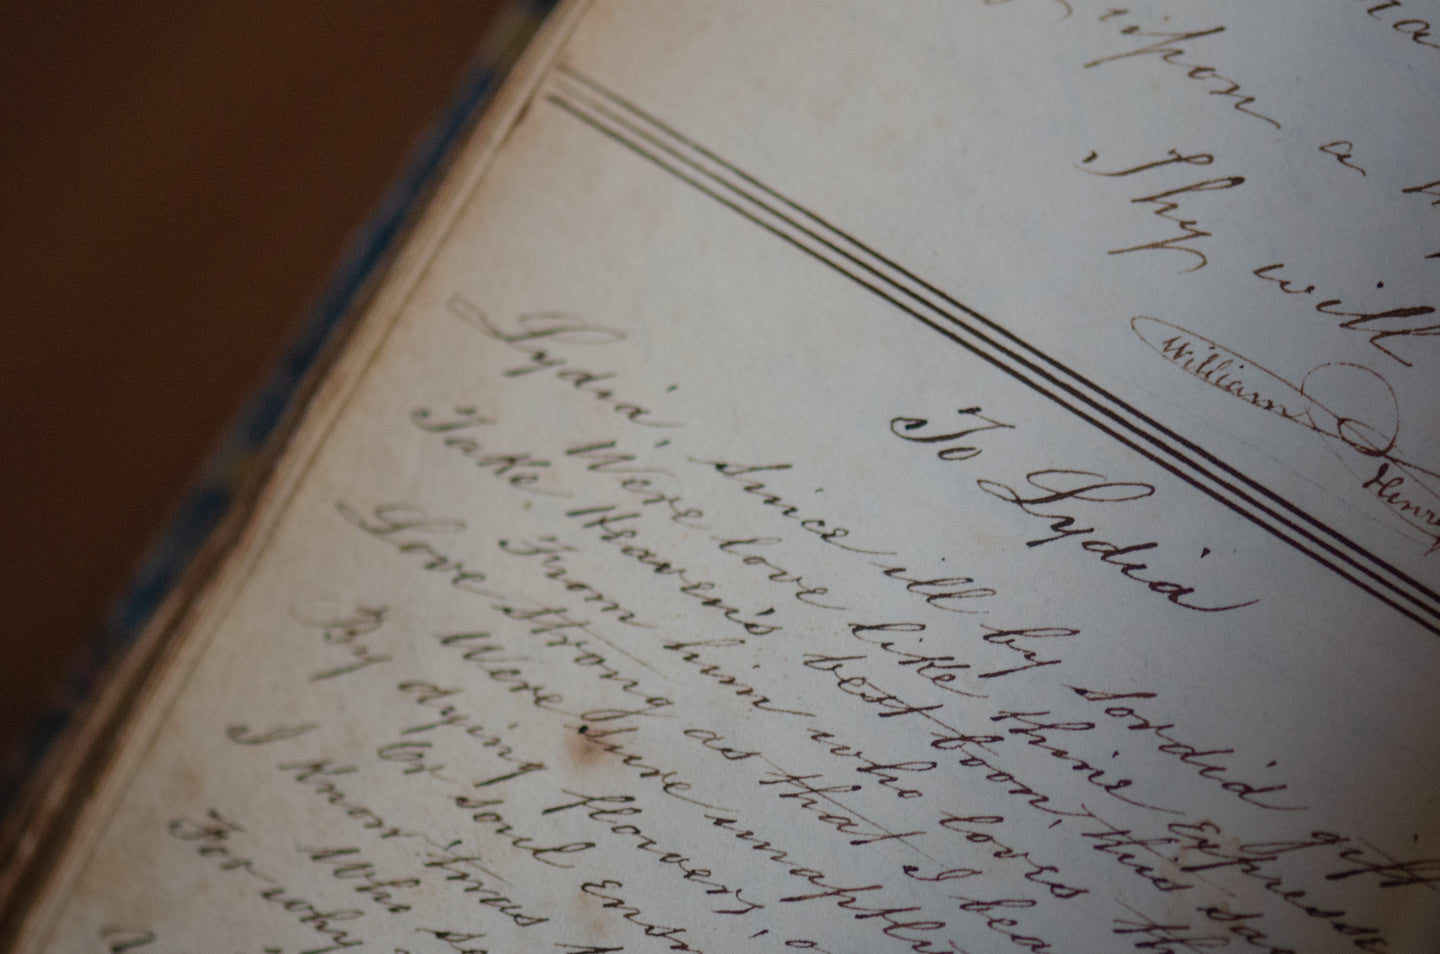 upon a
Thy will
William Henry
To Lydia
Lydia, since ill by sordid gift
Were love like thine Express
Take Heaven's best boon, this
From him who loves
Love strong as that I
Were sure
By dying flower,
Or soul
I know 'twas
Who
For why